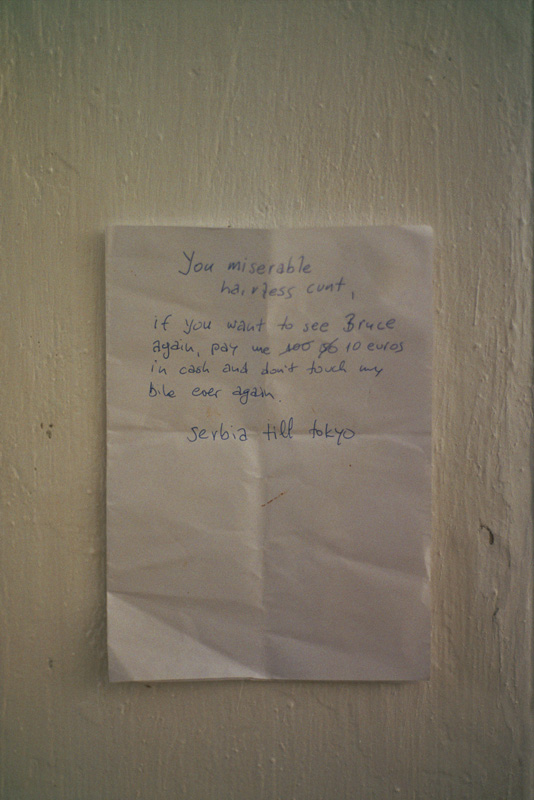 You miserable
hairless cunt,
if you want to see Bruce
again, pay me 100 50 10 euros
in cash and don't touch my
bike ever again.
serbia till tokyo